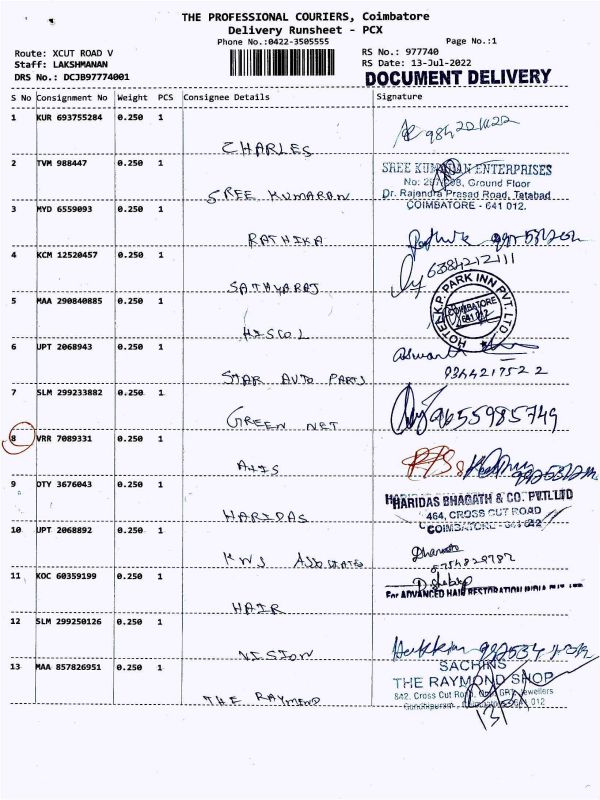 THE PROFESSIONAL COURIERS, Coimbatore
Delivery Runsheet - PCX
Phone No.:0422-3505555
Page No.:1
Route: XCUT ROAD V
RS No.: 977740
Staff: LAKSHMANAN
RS Date: 13-Jul-2022
DRS No.: DCJB97774001
DOCUMENT DELIVERY
S No Consignment No Weight PCS Consignee Details Signature
1 KUR 693755284 0.250 1
CHARLES
2 TVM 988447 0.250 1
SREE KUMARAN ENTERPRISES
Ground Floor
Dr. Rajendra Prasad Road, Tatabad
COIMBATORE - 641 012.
SREE KUMARAN
3 MYD 6559093 0.250 1
RATHIKA
4 KCM 12520457 0.250 1
6384212111
SATHYARAJ
5 MAA 290840885 0.250 1
HOTEL K.P. PARK INN PVT. LTD
COIMBATORE
641 012
HISCOL
6 UPT 2068943 0.250 1
9344217522
STAR AUTO PARTS
7 SLM 299233882 0.250 1
9655985749
GREEN NET
8 VRR 7089331 0.250 1
9 DTY 3676043 0.250 1
HARIDAS BHAGATH & CO. PVT. LTD
464, CROSS CUT ROAD
COIMBATORE - 641 012
HARIDAS
10 UPT 2068892 0.250 1
ASSOCIATES
11 KOC 60359199 0.250 1
For ADVANCED HAIR RESTORATION INDIA PVT. LTD.
HAIR
12 SLM 299250126 0.250 1
VISION
13 MAA 857826951 0.250 1
SACHINS
THE RAYMOND SHOP
842, Cross Cut Road, Opp. GRT Jewellers
Gandhipuram, Coimbatore - 641 012
THE RAYMOND